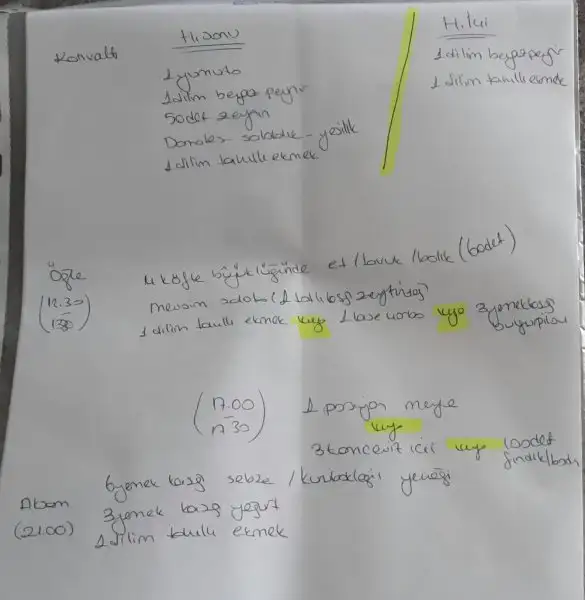 Kahvaltı
H.sonu
1 yumurta
1 dilim beyaz peynir
5 adet zeytin
Domates salatalık - yeşillik
1 dilim tahıllı ekmek
H.içi
1 dilim beyaz peynir
1 dilim tahıllı ekmek
Öğle
(12.30
- 130)
4 köfte büyüklüğünde et / tavuk / balık (6 adet)
mevsim salata (1 tatlı kaşığı zeytinyağ)
1 dilim tahıllı ekmek veya 1 kase çorba veya 3 yemek kaşığı
bulgur pilavı
(17.00
- 17 30)
1 porsiyon meyve
veya
3 tam ceviz içi veya 10 adet
fındık / badem
Akşam
(21.00)
6 yemek kaşığı sebze / kurubaklagil yemeği
3 yemek kaşığı yoğurt
1 dilim tahıllı ekmek